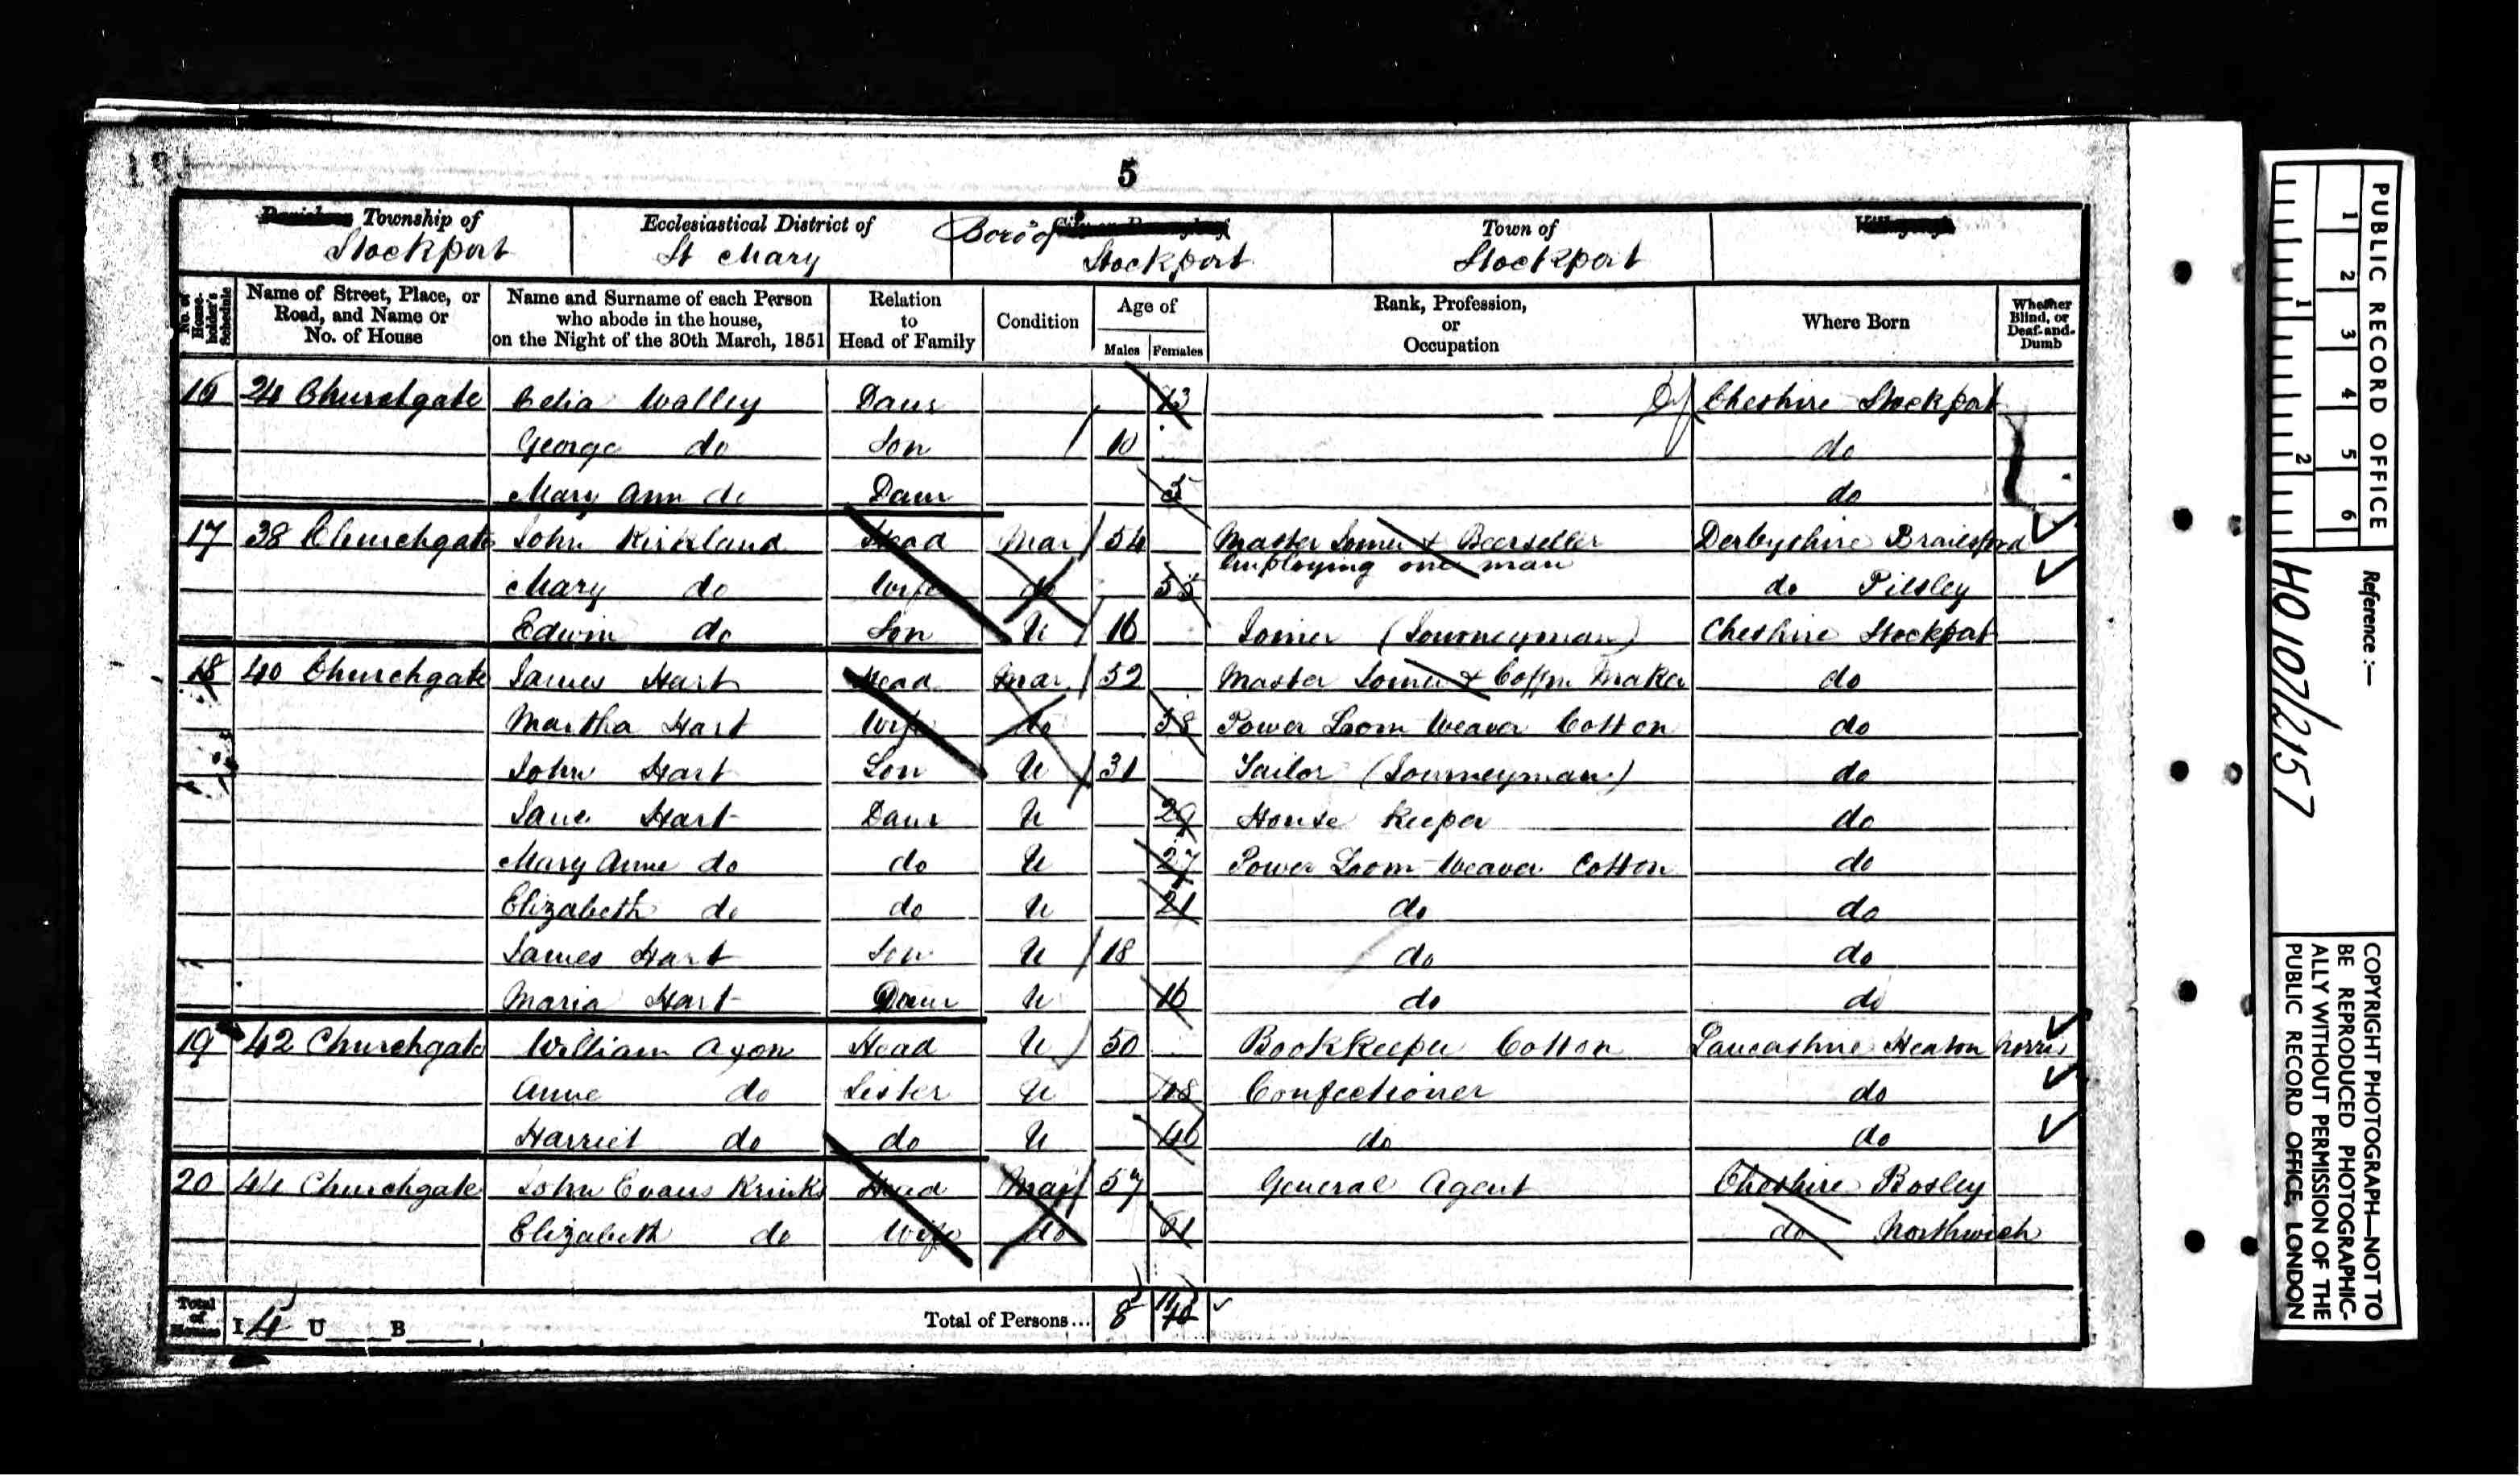 5
Township of
Stockport
Ecclesiastical District of
St Mary
Boro' of
Stockport
Town of
Stockport
No. of House-holder's Schedule
Name of Street, Place, or Road, and Name or No. of House
Name and Surname of each Person who abode in the house, on the Night of the 30th March, 1851
Relation to Head of Family
Condition
Age of
Males Females
Rank, Profession, or Occupation
Where Born
Whether Blind, or Deaf-and-Dumb
16 24 Churchgate Celia Walley Daur 13 Cheshire Stockport
George do Son 10 do
Mary Ann do Daur 5 do
17 38 Churchgate John Kirkland Head Mar 54 Master Joiner & Beerseller Derbyshire Brailsford
employing one man
Mary do Wife do 55 do Pilsley
Edwin do Son U 16 Joiner (Journeyman) Cheshire Stockport
18 40 Churchgate James Hart Head Mar 52 Master Joiner & Coffin Maker do
Martha Hart Wife do 58 Power Loom Weaver Cotton do
John Hart Son U 31 Tailor (Journeyman) do
Jane Hart Daur U 29 House Keeper do
Mary Anne do do U 27 Power Loom Weaver Cotton do
Elizabeth do do U 21 do do
James Hart Son U 18 do do
Maria Hart Daur U 16 do do
19 42 Churchgate William Axon Head U 50 Bookkeeper Cotton Lancashire Heaton Norris
Anne do Sister U 48 Confectioner do
Harriet do do U 46 do do
20 44 Churchgate John Evans Head Mar 57 General Agent Cheshire Bosley
Elizabeth do Wife do do Northwich
Total of Houses I 4 U B Total of Persons... 8
PUBLIC RECORD OFFICE
1 2 3 4 5 6
1 2
Reference :—
HO 107/2157
COPYRIGHT PHOTOGRAPH—NOT TO BE REPRODUCED PHOTOGRAPHIC-ALLY WITHOUT PERMISSION OF THE PUBLIC RECORD OFFICE, LONDON